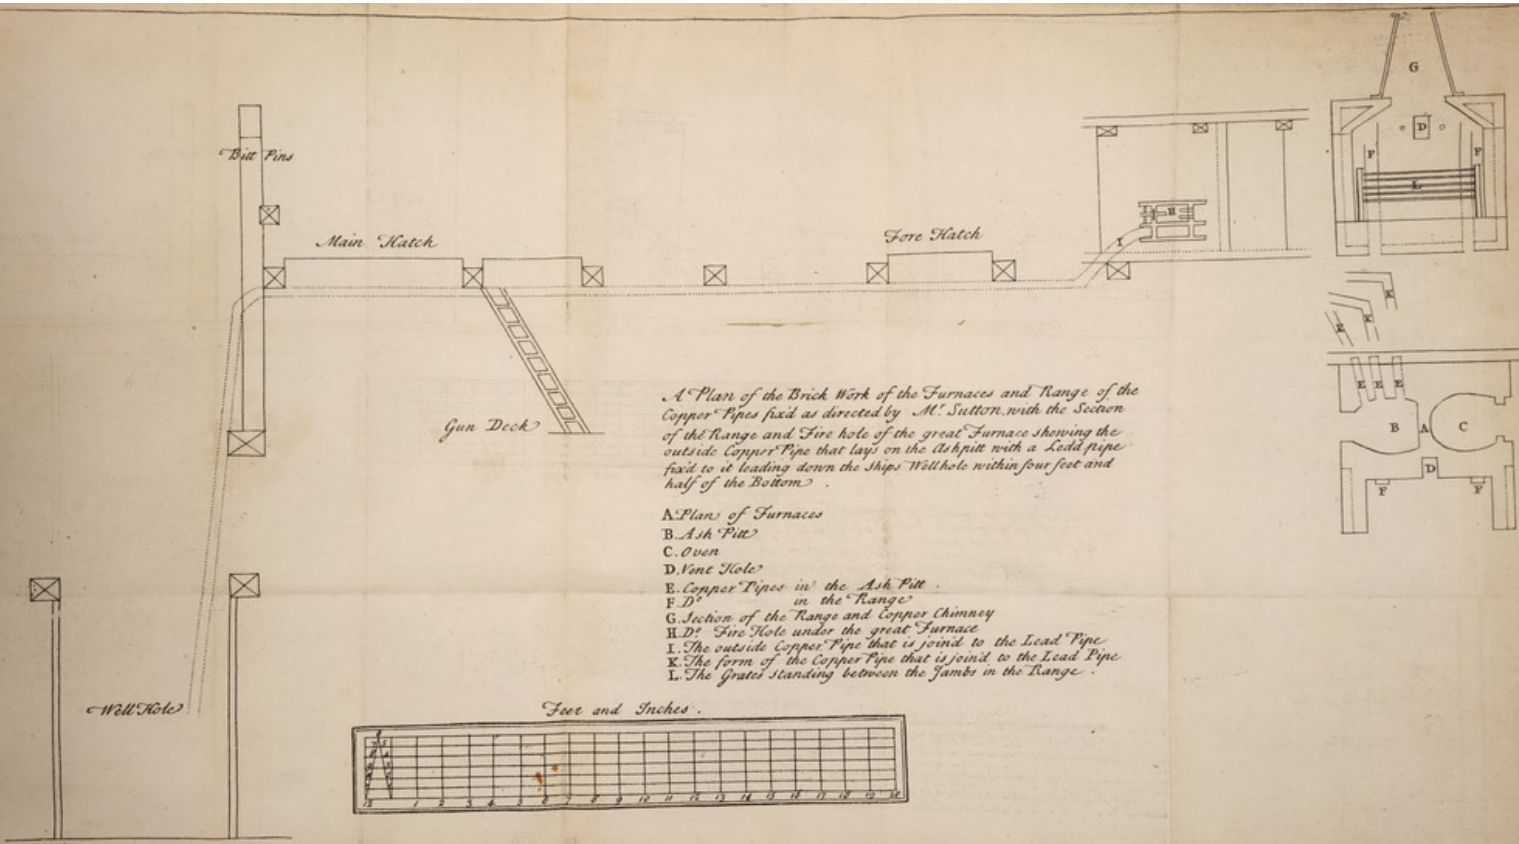 G
D
F F
L
Bitt Pins
Main Hatch
Fore Hatch
H
I
E
K
K
E E E
B A C
D
F F
Gun Deck
A Plan of the Brick Work of the Furnaces and Range of the
Copper Pipes fix'd as directed by Mr. Sutton, with the Section
of the Range and Fire hole of the great Furnace shewing the
outside Copper Pipe that lays on the Ashpitt with a Ledd pipe
fix'd to it leading down the Ships Wellhole within four feet and
half of the Bottom .
A Plan of Furnaces
B. Ash Pitt
C. Oven
D. Vent Hole
E. Copper Pipes in the Ash Pitt .
F. Do. in the Range
G. Section of the Range and Copper Chimney
H. Do. Fire Hole under the great Furnace
I. The outside Copper Pipe that is join'd to the Lead Pipe
K. The form of the Copper Pipe that is join'd to the Lead Pipe
L. The Grates standing between the Jambs in the Range .
Well Hole
Feet and Inches .
12 1 2 3 4 5 6 7 8 9 10 11 12 13 14 15 16 17 18 19 20